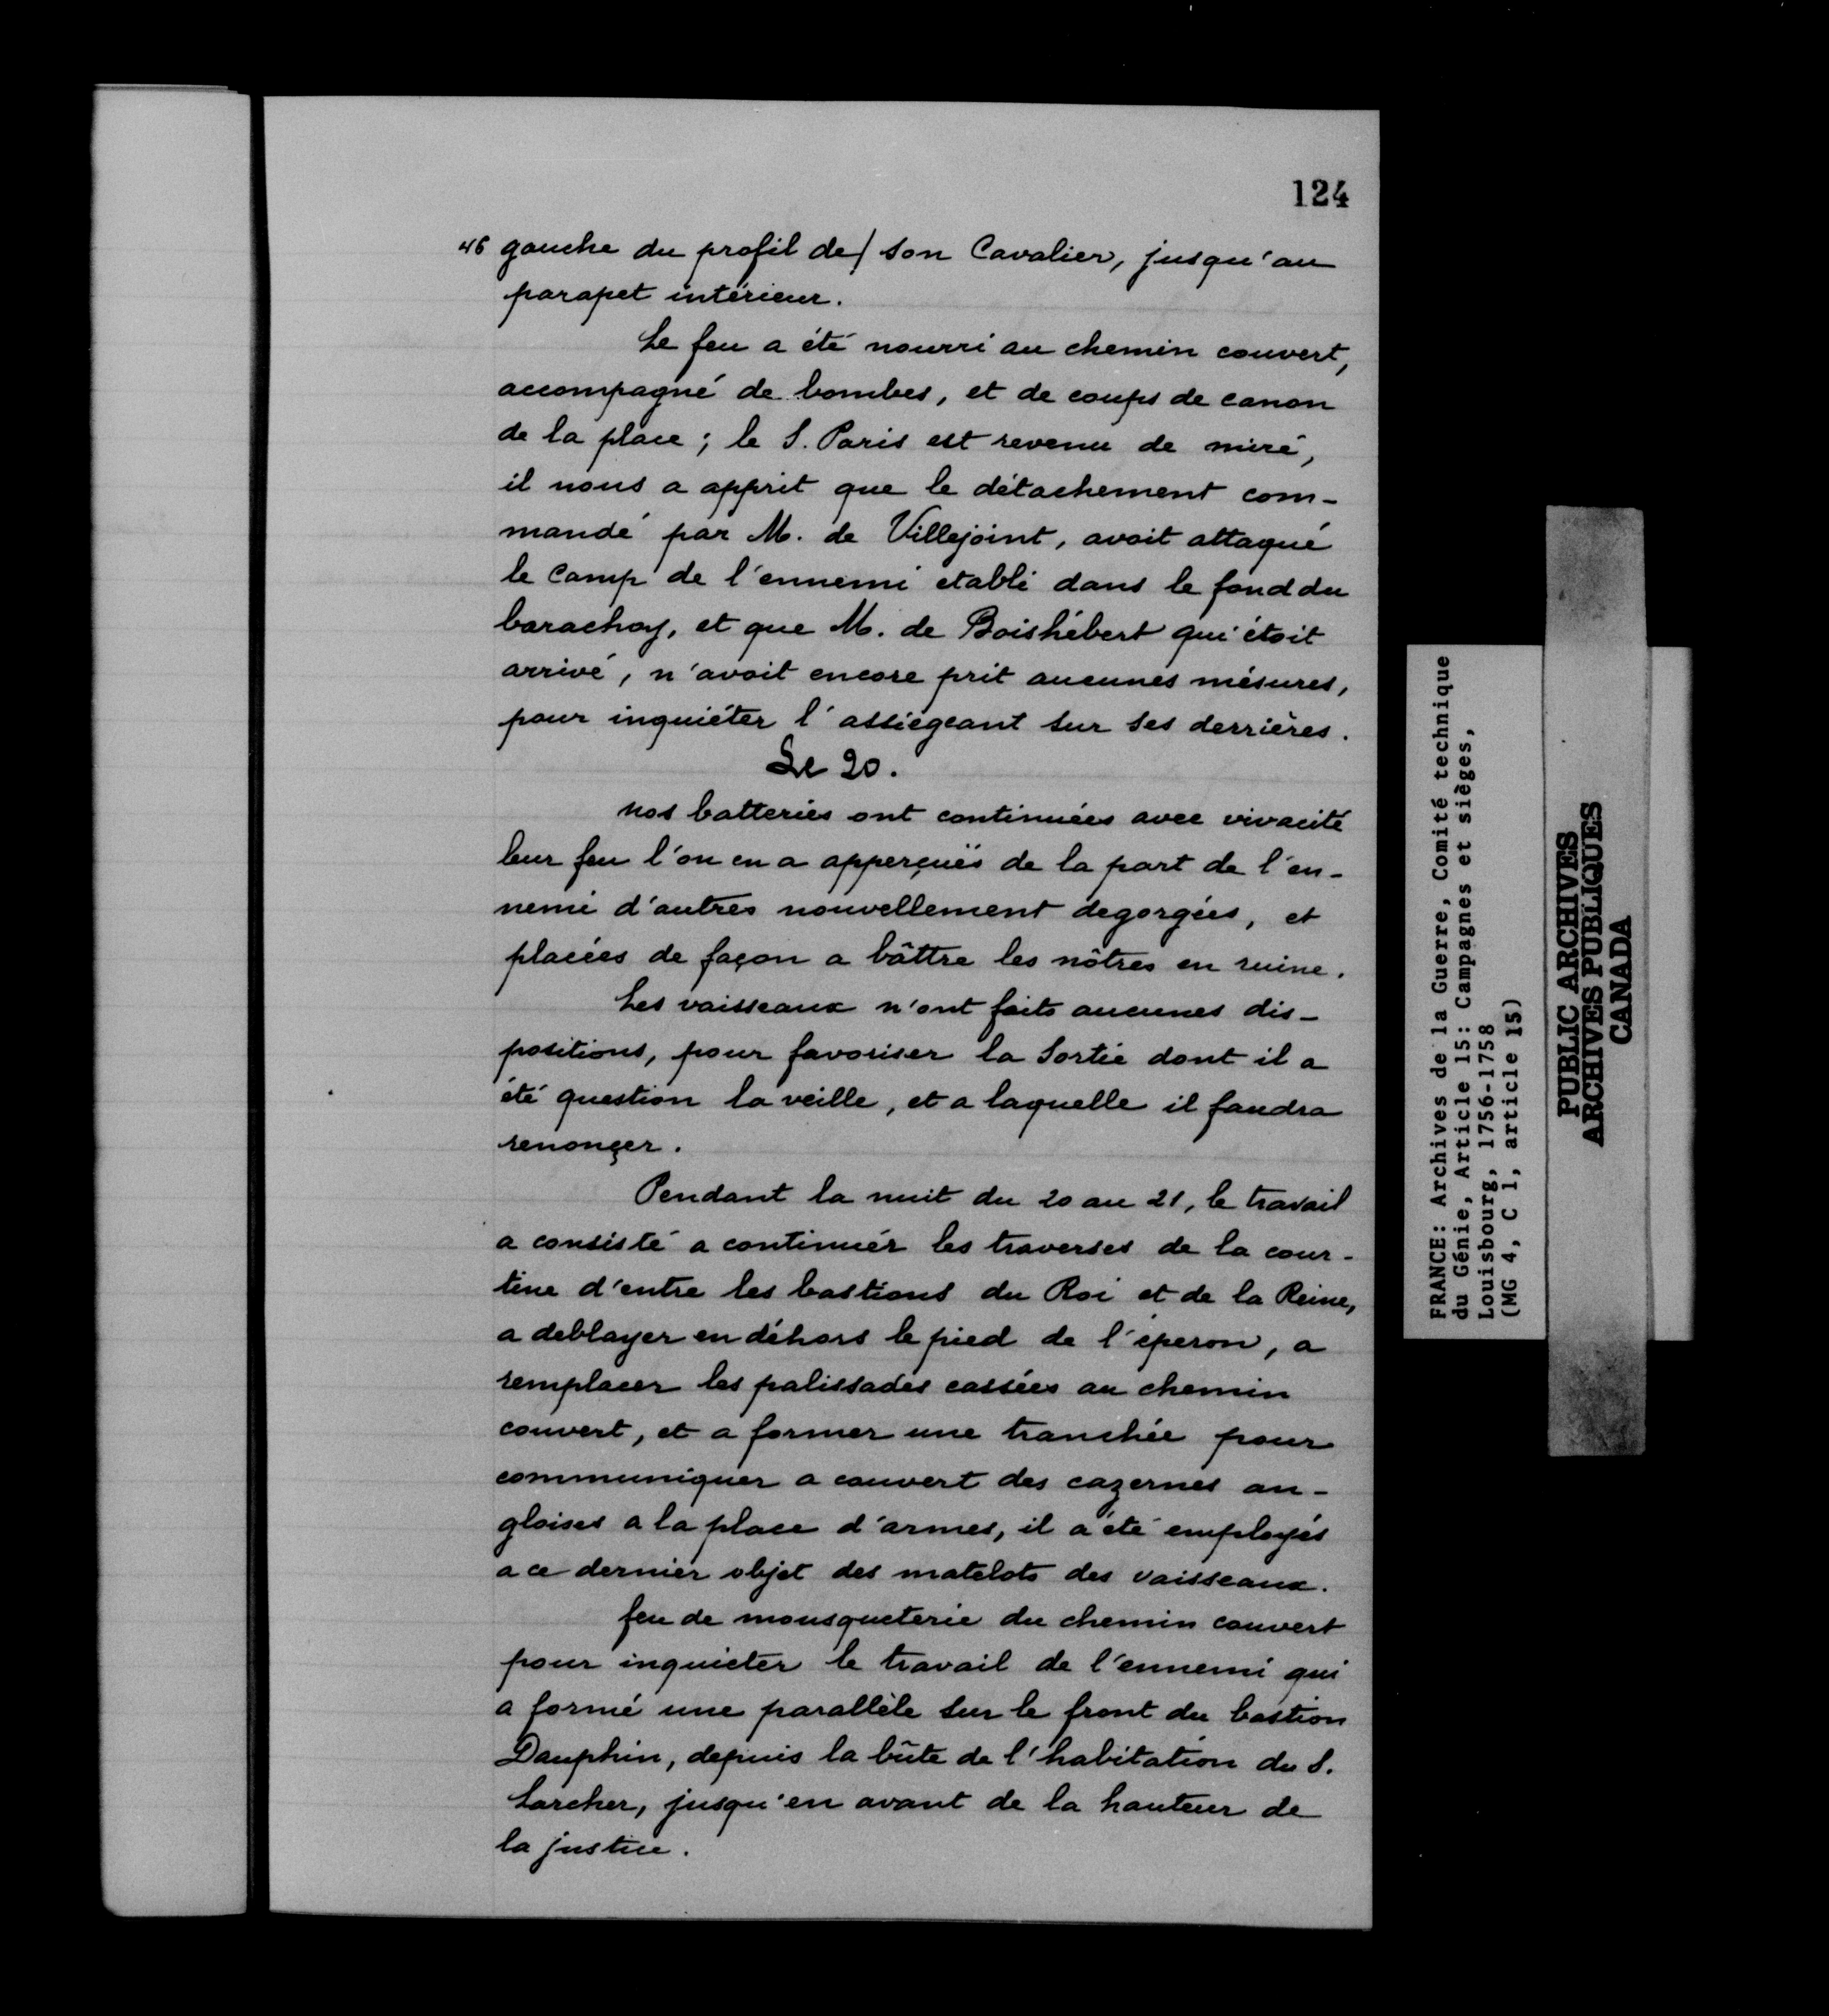 124
46 gauche du profil de/ son Cavalier, jusqu'au
parapet intérieur.
Le feu a été nourri au chemin couvert,
accompagné de bombes, et de coups de canon
de la place ; le S. Paris est revenu de miré,
il nous a apprit que le détachement com-
mandé par M. de Villejoint, avoit attaqué
le Camp de l'ennemi etabli dans le fond du
barachoy, et que M. de Boishébert qui étoit
arrivé, n'avoit encore prit aucunes mésures,
pour inquiéter l'assiégeant sur ses derrières.
Le 20.
nos batteries ont continuées avec vivacité
leur feu l'on en a apperçuës de la part de l'en-
nemi d'autres nouvellement degorgées, et
placées de façon a bâttre les nôtres en ruine.
Les vaisseaux n'ont faits aucunes dis-
positions, pour favoriser la Sortie dont il a
été question la veille, et a laquelle il faudra
renonçer.
Pendant la nuit du 20 au 21, le travail
a consisté a continuér les traverses de la cour-
tine d'entre les bastions du Roi et de la Reine,
a deblayer en déhors le pied de l'éperon, a
remplacer les palissades cassées au chemin
couvert, et a former une tranchée pour
communiquer a couvert des cazernes an-
gloises a la place d'armes, il a été employés
a ce dernier objet des matelots des vaisseaux.
feu de mousqueterie du chemin couvert
pour inquieter le travail de l'ennemi qui
a formé une parallèle sur le front du bastion
Dauphin, depuis la bûte de l'habitation du S.
Larcher, jusqu'en avant de la hauteur de
la justice.
FRANCE: Archives de la Guerre, Comité technique
du Génie, Article 15: Campagnes et sièges,
Louisbourg, 1756-1758
(MG 4, C 1, article 15)
PUBLIC ARCHIVES
ARCHIVES PUBLIQUES
CANADA